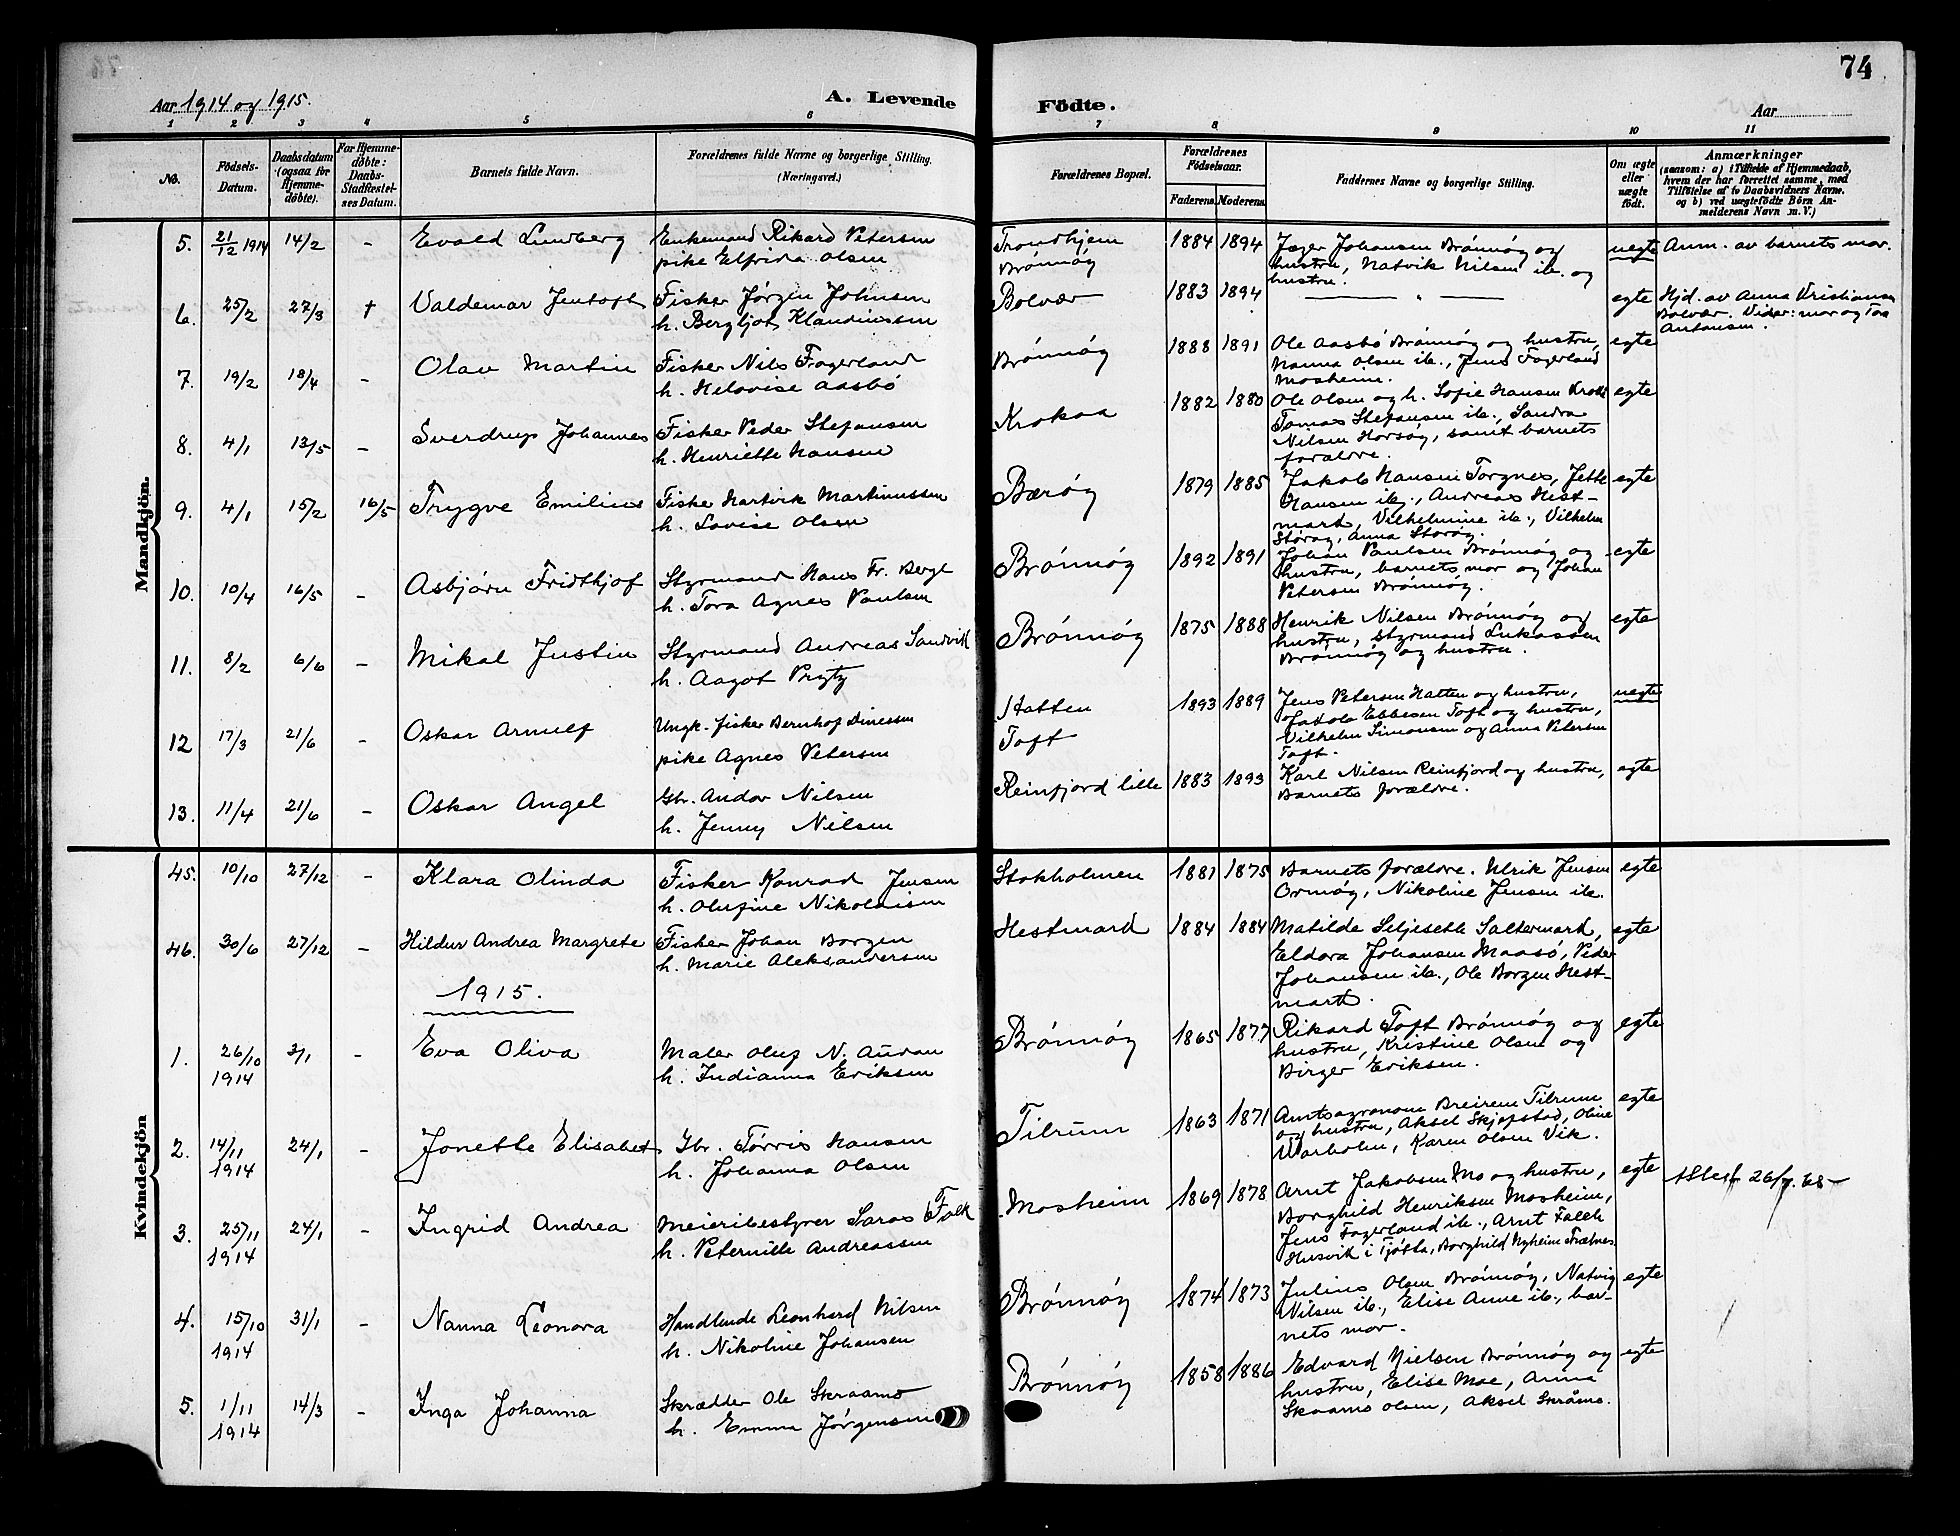 74
Aar 1914 og 1915.
A. Levende Födte.
Aar
1 2 3 4 5 6 7 8 9 10 11
No.
Födsels-Datum.
Daabsdatum (ogsaa for Hjemmedöbte).
For Hjemmedöbte: Daabs-Stadfæstelses Datum.
Barnets fulde Navn.
Forældrenes fulde Navne og borgerlige Stilling. (Næringsvei.)
Forældrenes Bopæl.
Forældrenes Födselsaar.
Faderens. Moderens.
Faddernes Navne og borgerlige Stilling.
Om ægte eller uægte födt.
Anmærkninger
(saasom: a) i Tilfælde af Hjemmedaab, hvem der har forrettet samme, med Tilföielse af to Daabsvidners Navne. og b) ved uægtefödte Börn Anmelderens Navn m. V.)
Mandkjön.
5. 21/12 1914 14/2 - Evald Lundberg
Enkemand Rikard Petersen
pike Elfrida Olsen
Trondhjem
Brönnög
1884 1894
Jæger Johansen Brönnög og
hustru, Natvik Nilsen ib. og
hustru.
uegte
Anm. av barnets mor.
6. 25/2 27/3 † Valdemar Jentoft
Fisker Jörgen Johnsen
h. Bergljot Klaudiussen
Bolvær
1883 1894
— " —
egte
Hjd. av Anna Kristiansen
Bolvær. Vidner: mor og
Antonsen.
7. 19/2 18/4 - Olav Martin
Fisker Nils Fagerland
h. Helovise Aasbö
Brönnög
1888 1891
Ole Aasbö Brönnög og hustru,
Nanna Olsen ib., Jens Fagerland
Mosheim.
egte
8. 4/1 13/5 - Sverdrup Johannes
Fisker Peder Stefansen
h. Henriette Hansen
Krokaa
1882 1880
Ole Olsen og h. Sofie Hansen
Tomas Stefansen ib., Sandra
Nilsen Horsög, samt barnets
forældre.
egte
9. 4/1 15/2 16/5 Trygve Emilius
Fiske Hartvik Martinussen
h. Lovise Olsen
Bærög
1879 1885
Jakob Hansen Torgnes, Jette
Hansen ib., Andreas Hest-
mard, Vilhelmine ib., Vilhelm
Storög, Anna Storög.
egte
10. 10/4 16/5 - Asbjörn Fridthjof
Styrmand Hans Fr. Bergh
h. Tora Agnes Paulsen
Brönnög
1892 1891
Johan Paulsen Brönnög og
hustru, barnets mor og Johan
Petersen Brönnög.
egte
11. 8/2 6/6 - Mikal Justin
Styrmand Andreas Sandvik
h. Aagot Prytz
Brönnög
1875 1888
Henrik Nilsen Brönnög og
hustru, styrmand Lukassen
Brönnög og hustru.
egte
12 17/3 21/6 - Oskar Arnulf
Ungk. fisker Bernhof Dinessen
pike Agnes Petersen
Hatten
Toft
1893 1889
Jens Petersen Hatten og hustru,
Jakob Ebbesen Toft og hustru,
Vilhelm Simonsen og Anna Petersen
Toft.
uegte
13. 11/4 21/6 - Oskar Angel
Gbr. Andor Nilsen
h. Jenny Nilsen
Reinfjord lille
1883 1893
Karl Nilsen Reinfjord og hustru,
Barnets forældre.
egte
Kvindekjön
45. 10/10 27/12 - Klara Olinda
Fisker Konrad Jensen
h. Olufine Nikolaisen
Stokholmen
1881 1875
Barnets forældre. Ulrik Jensen
Ormög, Nikoline Jensen ib.
egte
46. 30/6 27/12 - Hildur Andrea Margrete
Fisker Johan Borgen
h. Marie Aleksandersen
Hestmard
1884 1884
Matilde Seljeseth Saltermark,
Eldora Johansen Maasö, Peder
Johansen ib., Ole Borgen Hest-
mard.
egte
1915.
1. 26/10 1914 3/1 - Eva Oliva
Maler Oluf N. Audan
h. Indianna Eriksen
Brönnög
1865 1877
Rikard Toft Brönnög og
hustru, Kristine Olsen og
Birger Eriksen.
egte
2. 14/11 1914 24/1 - Jonette Elisabet
Gbr. Tørris Hansen
h. Johanna Olsen
Tilrum
1863 1871
Amtsagronom Breirem Tilrum
og hustru, Aksel Skjefstad, Oline
Warholm, Karen Olsen Vik.
egte
3. 25/11 1914 24/1 - Ingrid Andrea
Meieribestyrer Saras Falk
h. Peternille Andreassen
Mosheim
1869 1878
Arnt Jakobsen Mo og hustru,
Borghild Henriksen Mosheim,
Jens Fagerland ib., Arnt Falch
Husvik i Tjötta, Borghild Nyheim
egte
26/9.68
4. 15/10 1914 31/1 - Nanna Leonora
Handlende Leonhard Nilsen
h. Nikoline Johansen
Brönnög
1874 1873
Julius Olsen Brönnög, Natvig
Nilsen ib., Elise Anne ib., bar-
nets mor.
egte
5. 1/11 1914 14/3 - Inga Johanna
Skrædder Ole Skraamo
h. Emma Jørgensen
Brönnög
1858 1886
Edvard Nielsen Brönnög og
hustru, Elise Moe, Anna
Skaamo Olsen, Aksel Skråmo.
egte